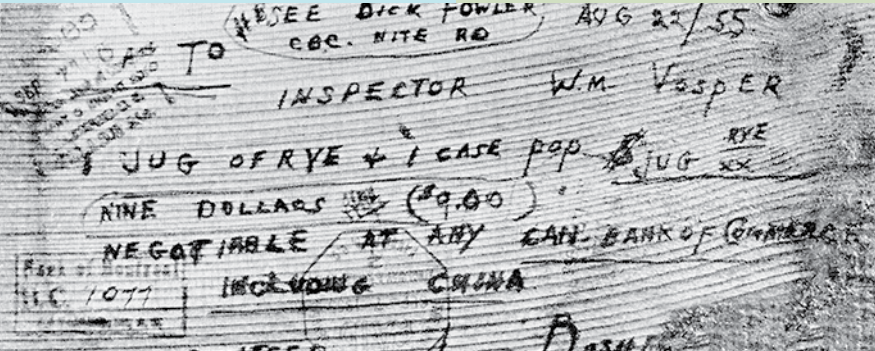 SEE DICK FOWLER AUG 22/55
CBC. NITE RD
TO
INSPECTOR W.M. VOSPER
1 JUG OF RYE & 1 CASE pop $ JUG RYE XX
NINE DOLLARS ($9.00)
NEGOTIABLE AT ANY CAN. BANK OF COMMERCE
INCLUDING CHINA
Bank of Montreal
1077